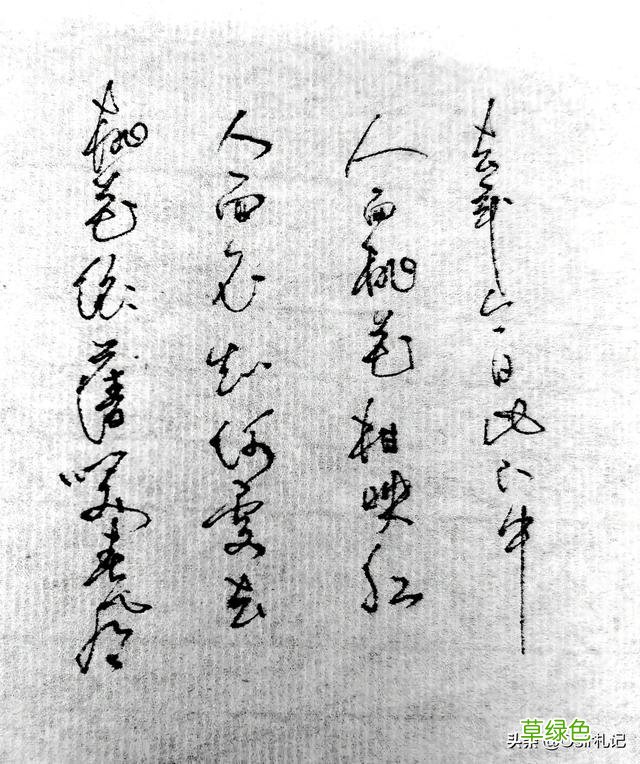 去年今日此门中
人面桃花相映红
人面不知何處去
桃花依舊咲春风
草绿色
头条
札记